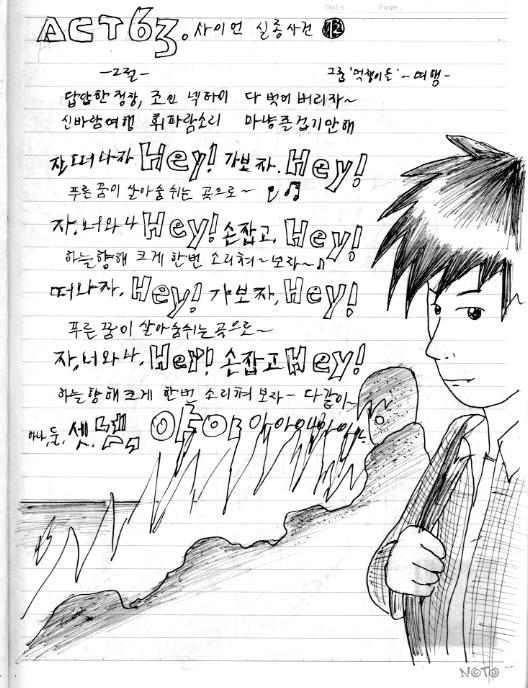 Date. Page.
ACT 63. 사이언 실종사건 12
-그럼- 그룹 '먹쟁이들' -여행-
답답한 정장, 조인 넥타이 다 벗어 버리자~
신바람여행 휘파람소리 마냥 즐겁기만해
자, 떠나자 Hey! 가보자. Hey!
푸른 꿈이 살아숨쉬는 곳으로~
자, 너와 나 Hey! 손잡고, Hey!
하늘향해 크게 한번 소리쳐~보라~
떠나자, Hey! 가보자, Hey!
푸른 꿈이 살아숨쉬는곳으로~
자, 너와 나, Hey! 손잡고 Hey!
하늘향해 크게 한번 소리쳐 보라~ 다같이~
하나, 둘, 셋, 넷, 야야야야야야야
NOTO